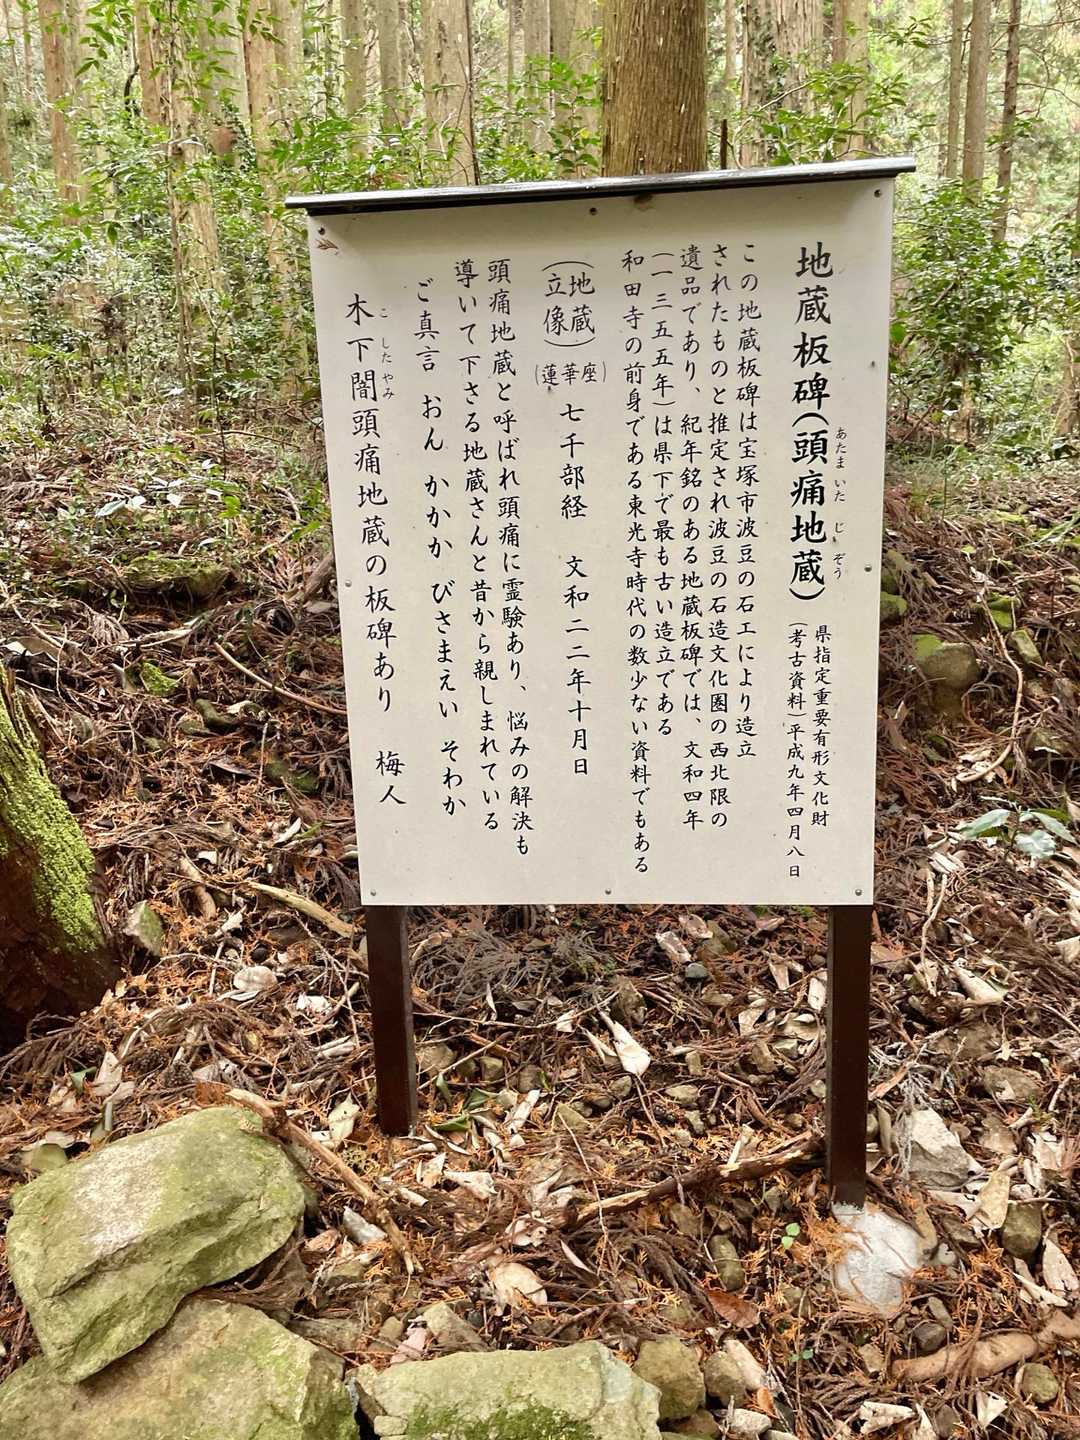 地蔵板碑(頭痛地蔵)
あたまいたじぞう
県指定重要有形文化財
(考古資料)平成九年四月八日
この地蔵板碑は宝塚市波豆の石工により造立
されたものと推定され波豆の石造文化圏の西北限の
遺品であり、紀年銘のある地蔵板碑では、文和四年
(一三五五年)は県下で最も古い造立である
和田寺の前身である東光寺時代の数少ない資料でもある
(地蔵立像)(蓮華座)七千部経 文和二二年十月日
頭痛地蔵と呼ばれ頭痛に霊験あり、悩みの解決も
導いて下さる地蔵さんと昔から親しまれている
ご真言 おん かかか びさまえい そわか
木下闇頭痛地蔵の板碑あり 梅人
こしたやみ